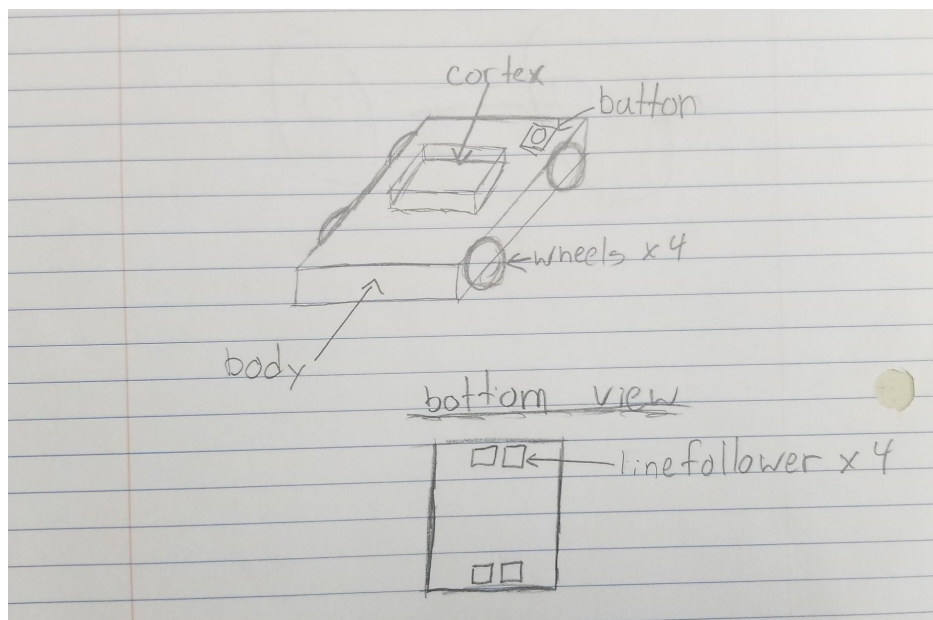 cortex
button
wheels x 4
body
bottom view
line follower x 4